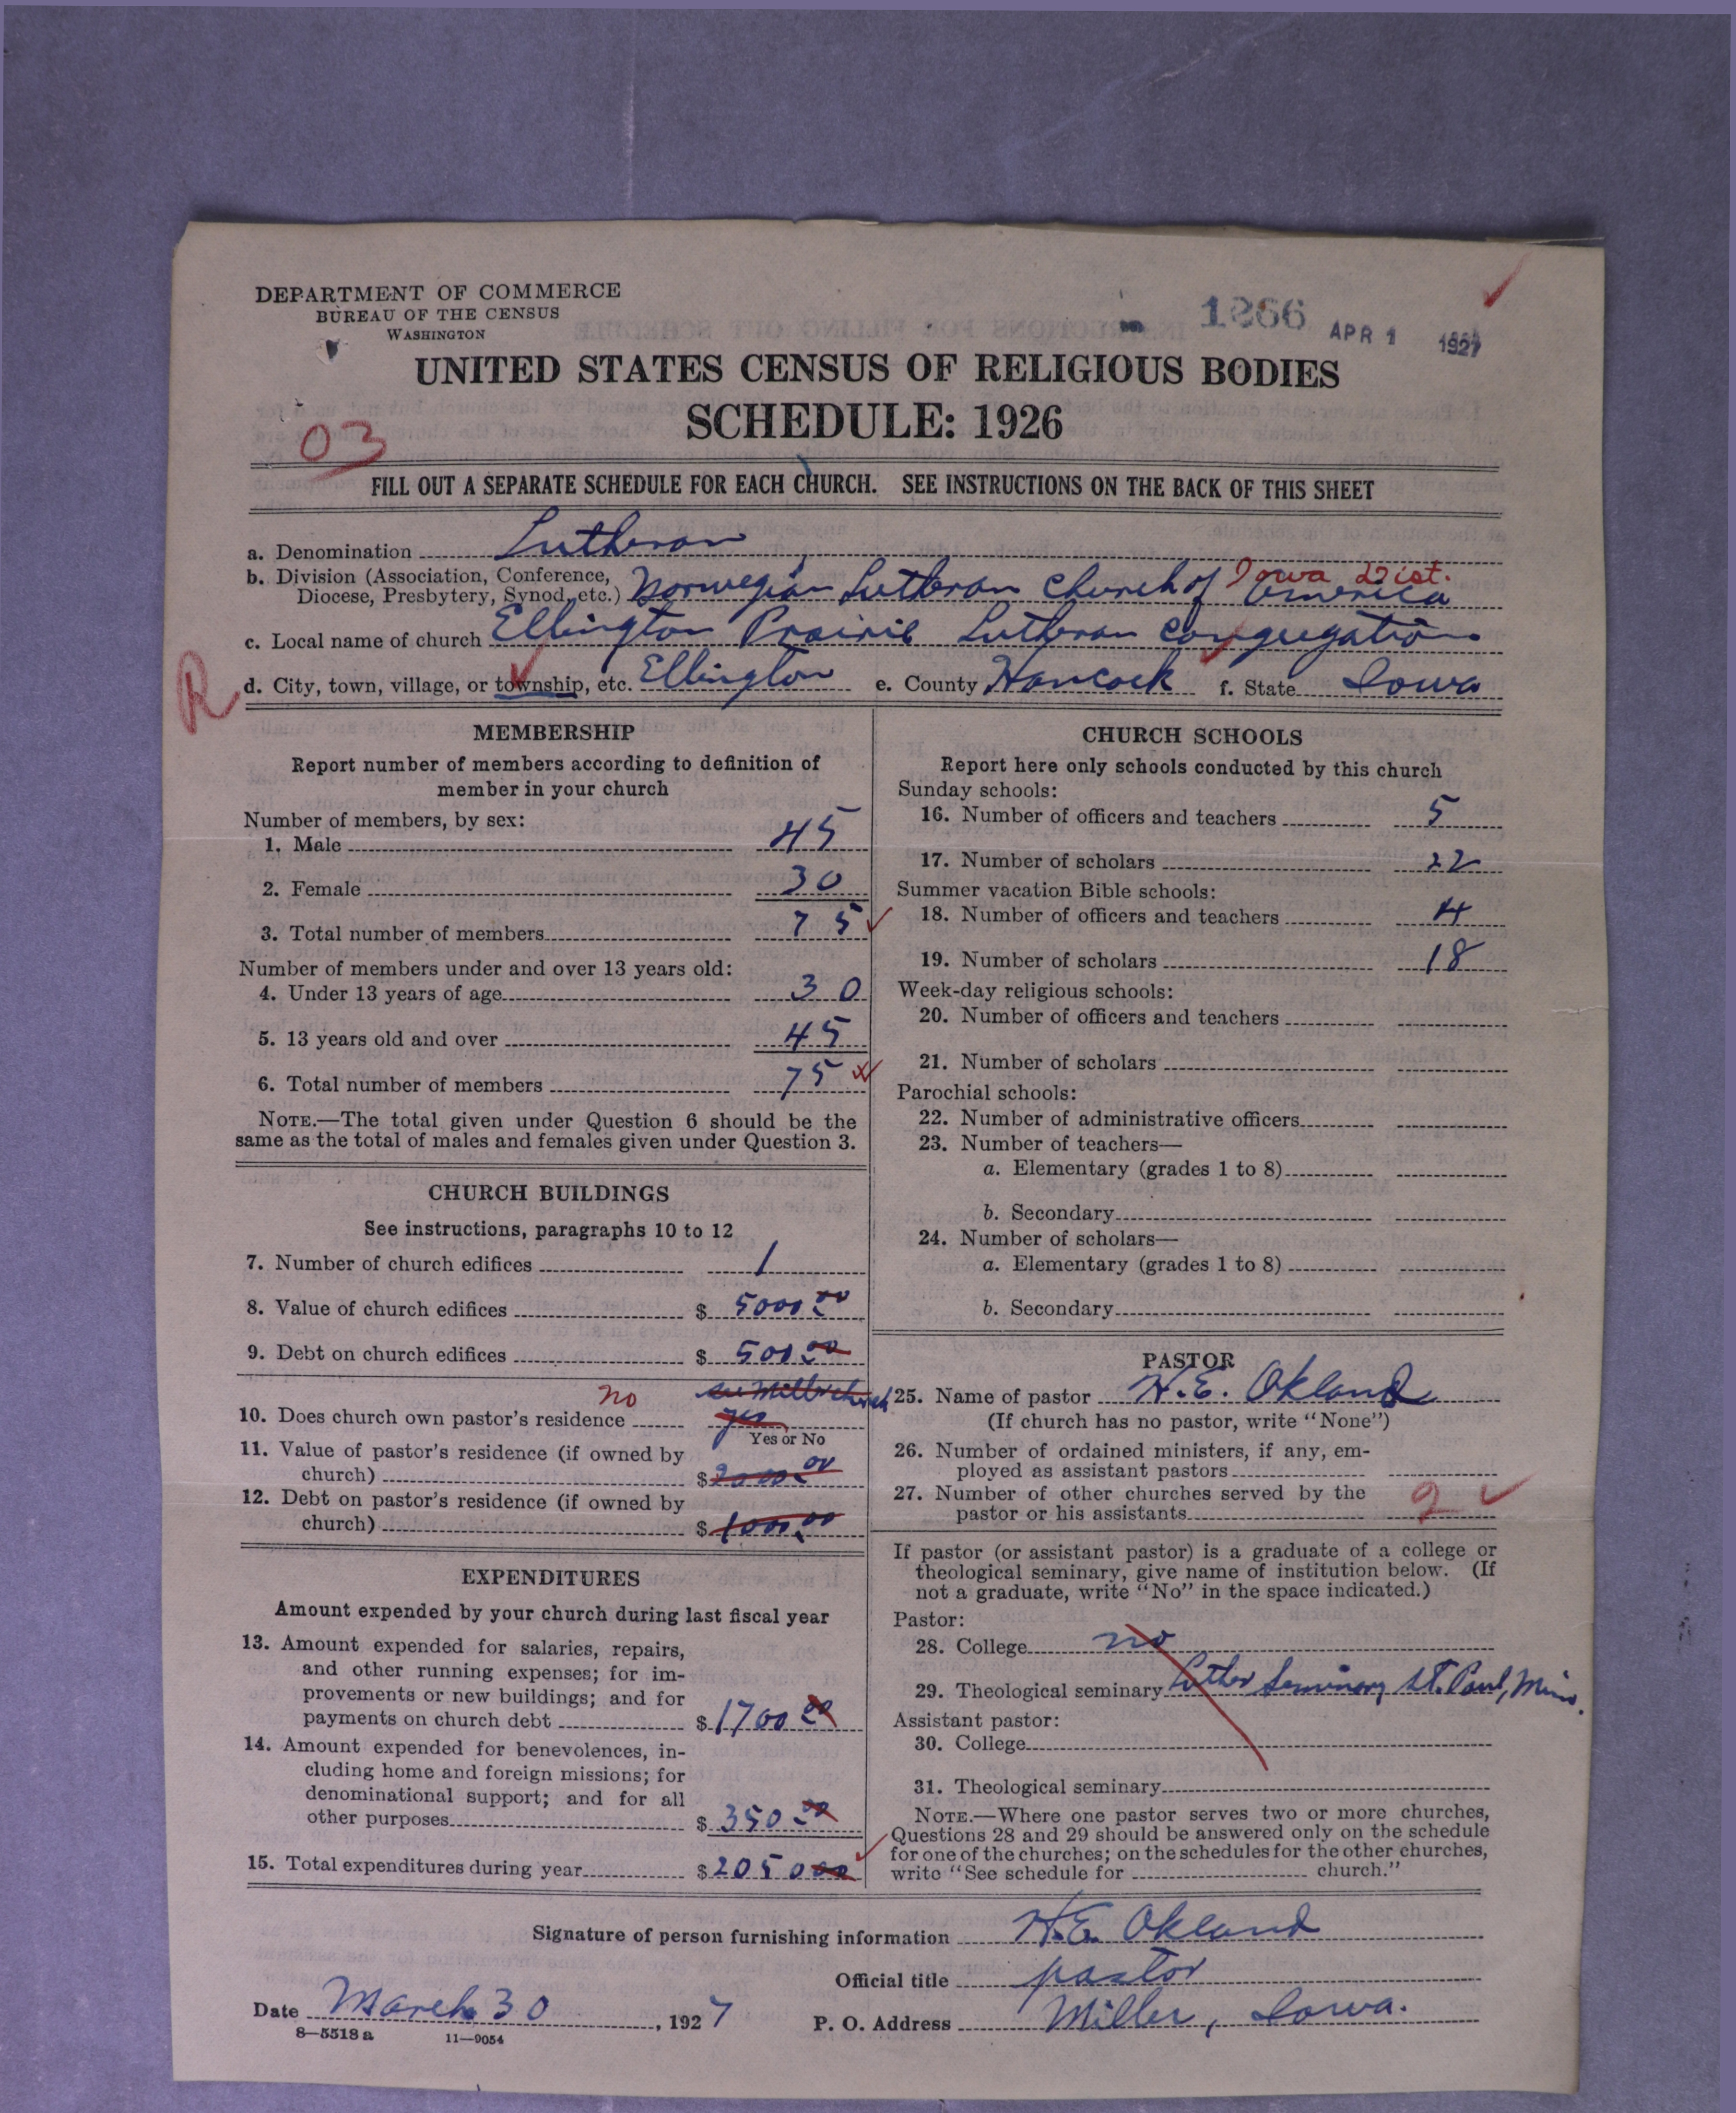 DEPARTMENT OF COMMERCE
BUREAU OF THE CENSUS
WASHINGTON
1866 APR 1 1927
UNITED STATES CENSUS OF RELIGIOUS BODIES
SCHEDULE: 1926
03
FILL OUT A SEPARATE SCHEDULE FOR EACH CHURCH. SEE INSTRUCTIONS ON THE BACK OF THIS SHEET
a. Denomination Lutheran
b. Division (Association, Conference, Diocese, Presbytery, Synod, etc.) Norwegian Lutheran Church of America Iowa Dist.
c. Local name of church Ellington Prairie Lutheran Congregation
R d. City, town, village, or township, etc. Ellington e. County Hancock f. State Iowa
MEMBERSHIP
Report number of members according to definition of
member in your church
Number of members, by sex:
1. Male 45
2. Female 30
3. Total number of members 75
Number of members under and over 13 years old:
4. Under 13 years of age 30
5. 13 years old and over 45
6. Total number of members 75
NOTE.—The total given under Question 6 should be the
same as the total of males and females given under Question 3.
CHURCH BUILDINGS
See instructions, paragraphs 10 to 12
7. Number of church edifices 1
8. Value of church edifices $ 5000.00
9. Debt on church edifices $ 500.00
see Miller church
10. Does church own pastor's residence no yes
Yes or No
11. Value of pastor's residence (if owned by
church) $ 2000.00
12. Debt on pastor's residence (if owned by
church) $ 1000.00
EXPENDITURES
Amount expended by your church during last fiscal year
13. Amount expended for salaries, repairs,
and other running expenses; for im-
provements or new buildings; and for
payments on church debt $ 1700.00
14. Amount expended for benevolences, in-
cluding home and foreign missions; for
denominational support; and for all
other purposes $ 350.00
15. Total expenditures during year $ 2050.00
CHURCH SCHOOLS
Report here only schools conducted by this church
Sunday schools:
16. Number of officers and teachers 5
17. Number of scholars 22
Summer vacation Bible schools:
18. Number of officers and teachers 4
19. Number of scholars 18
Week-day religious schools:
20. Number of officers and teachers
21. Number of scholars
Parochial schools:
22. Number of administrative officers
23. Number of teachers—
a. Elementary (grades 1 to 8)
b. Secondary
24. Number of scholars—
a. Elementary (grades 1 to 8)
b. Secondary
PASTOR
25. Name of pastor H.E. Okland
(If church has no pastor, write "None")
26. Number of ordained ministers, if any, em-
ployed as assistant pastors
27. Number of other churches served by the
pastor or his assistants 2
If pastor (or assistant pastor) is a graduate of a college or
theological seminary, give name of institution below. (If
not a graduate, write "No" in the space indicated.)
Pastor:
28. College no
29. Theological seminary Luther Seminary St. Paul, Minn.
Assistant pastor:
30. College
31. Theological seminary
NOTE.—Where one pastor serves two or more churches,
Questions 28 and 29 should be answered only on the schedule
for one of the churches; on the schedules for the other churches,
write "See schedule for church."
Signature of person furnishing information H.E. Okland
Official title pastor
Date March 30, 1927 P. O. Address Miller, Iowa.
8—5518 a 11—9054